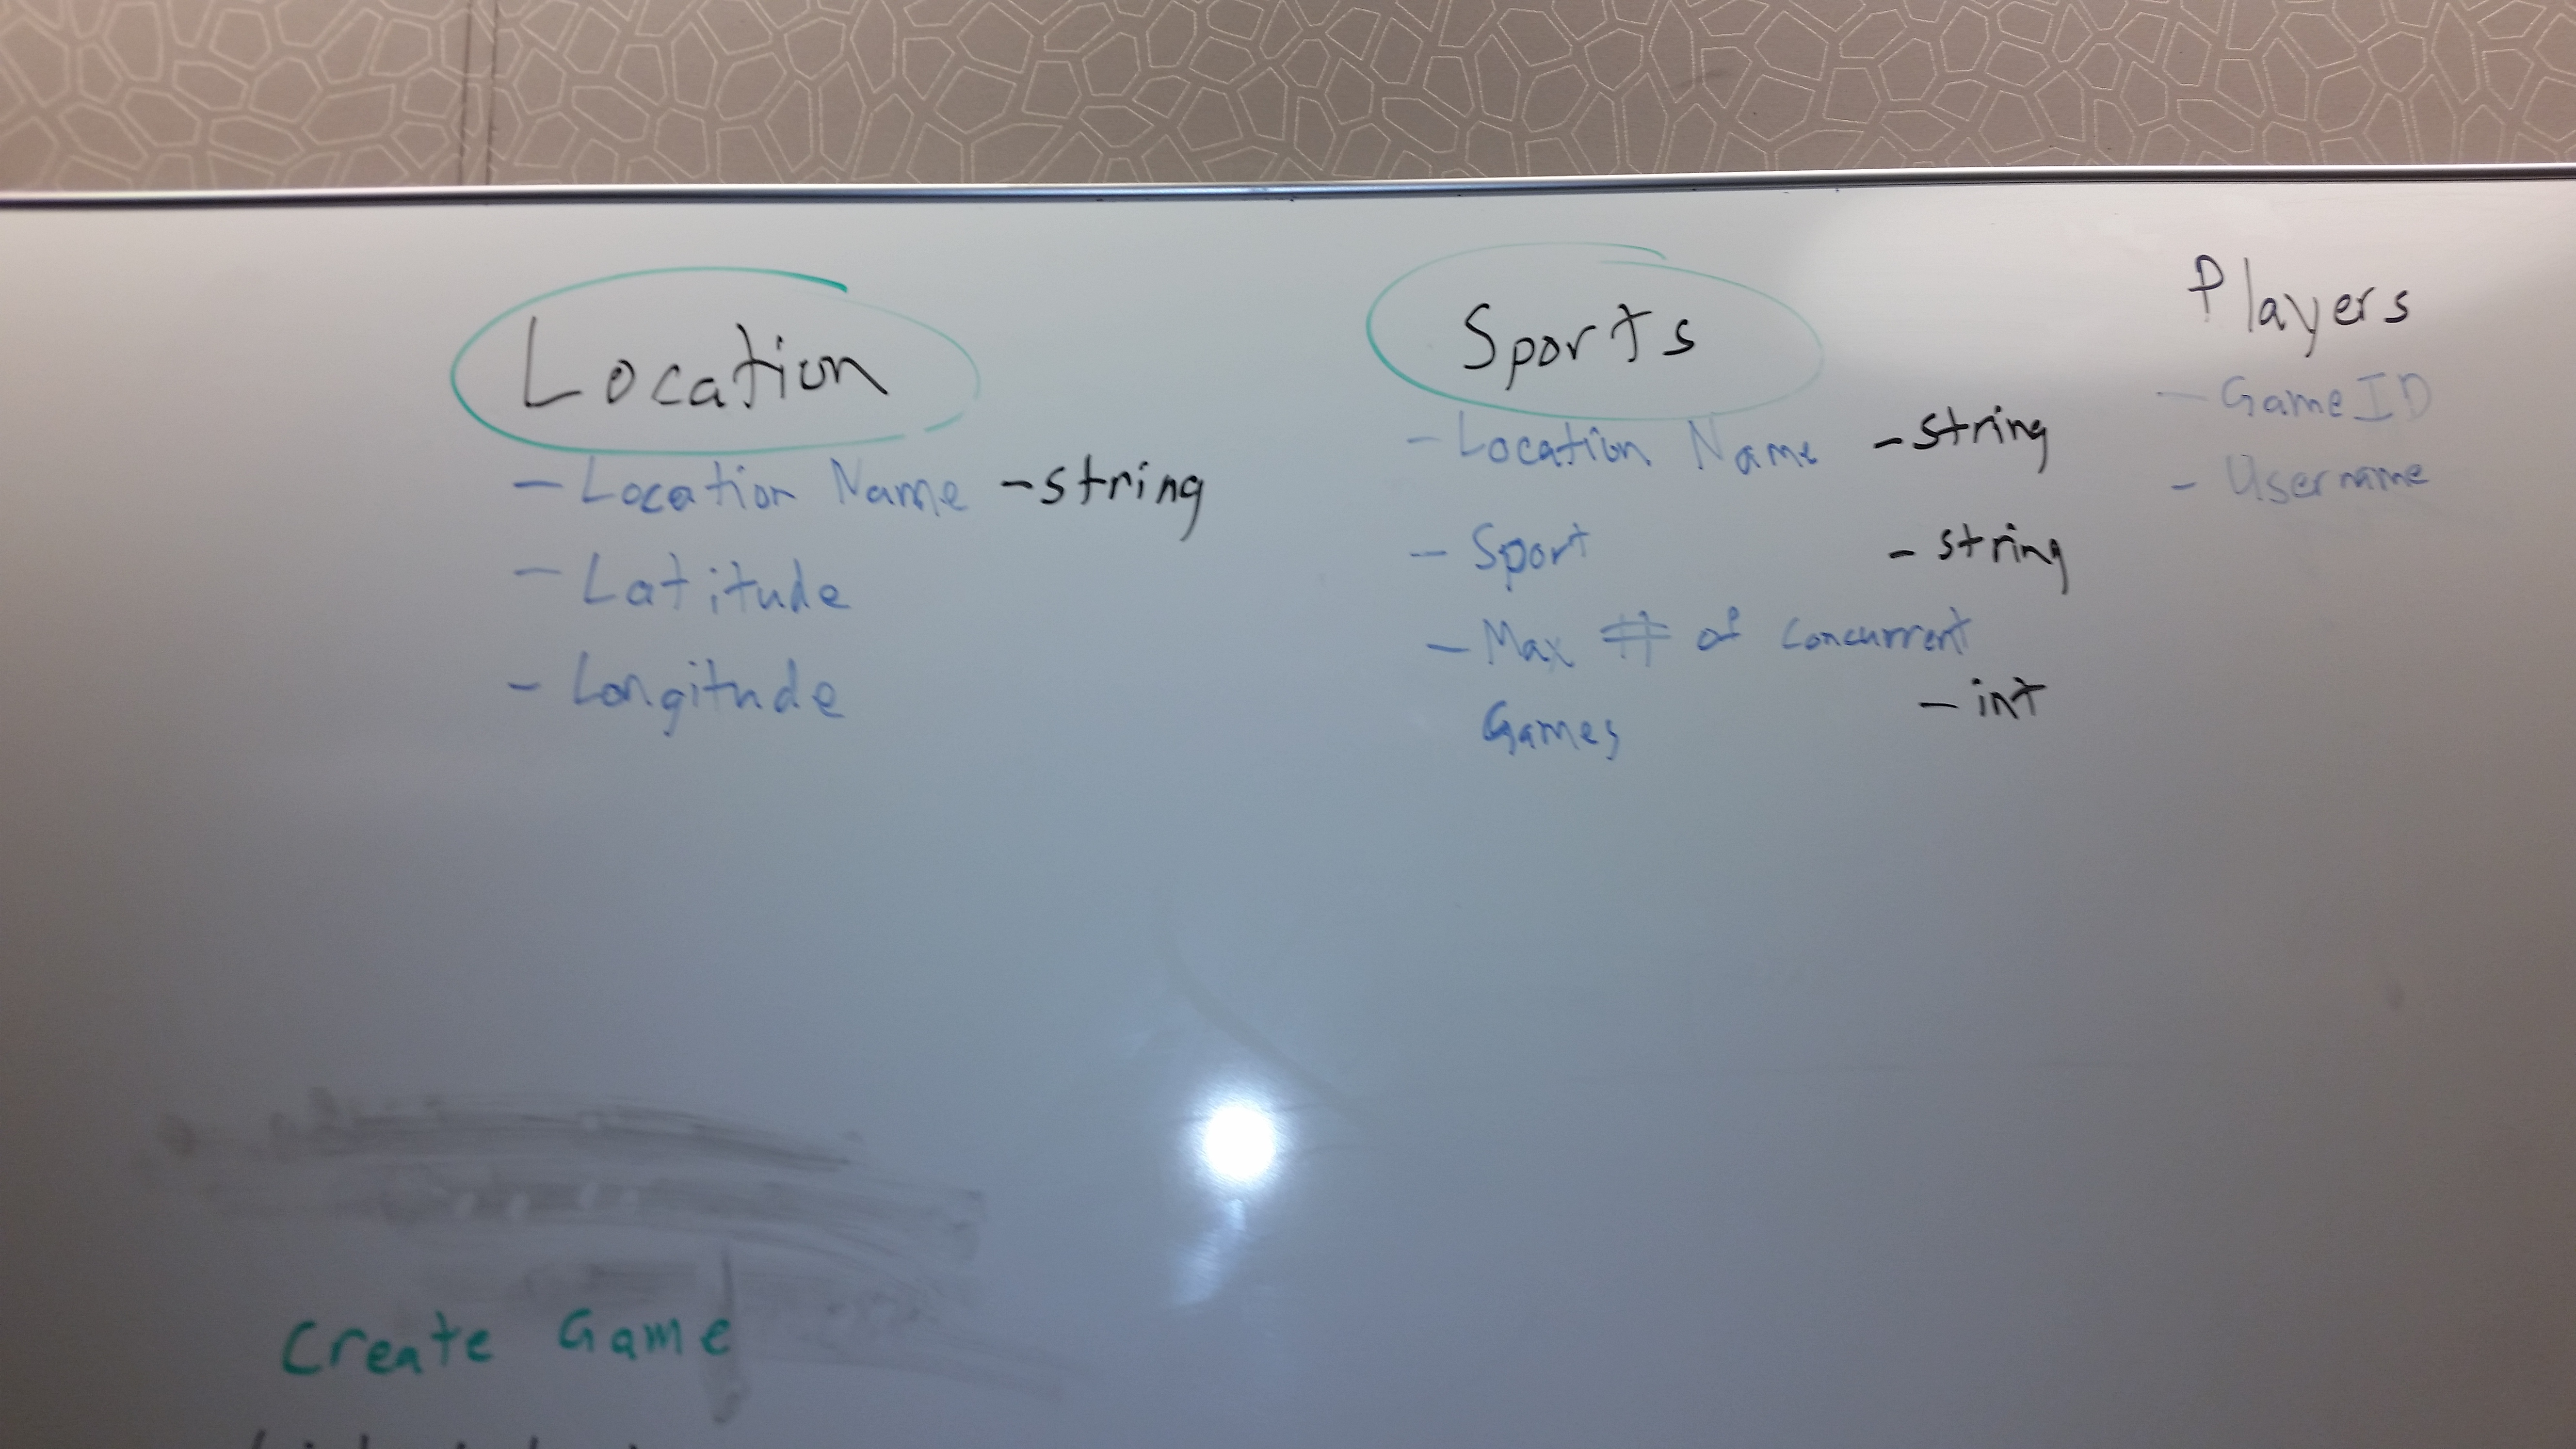 Location
- Location Name - string
- Latitude
- Longitude
Sports
- Location Name - string
- Sport - string
- Max # of concurrent
Games - int
Players
- GameID
- Username
Create Game